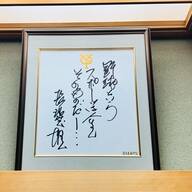 野球という
スポーツは人生
そのものだ…
長嶋茂雄
GIANTS